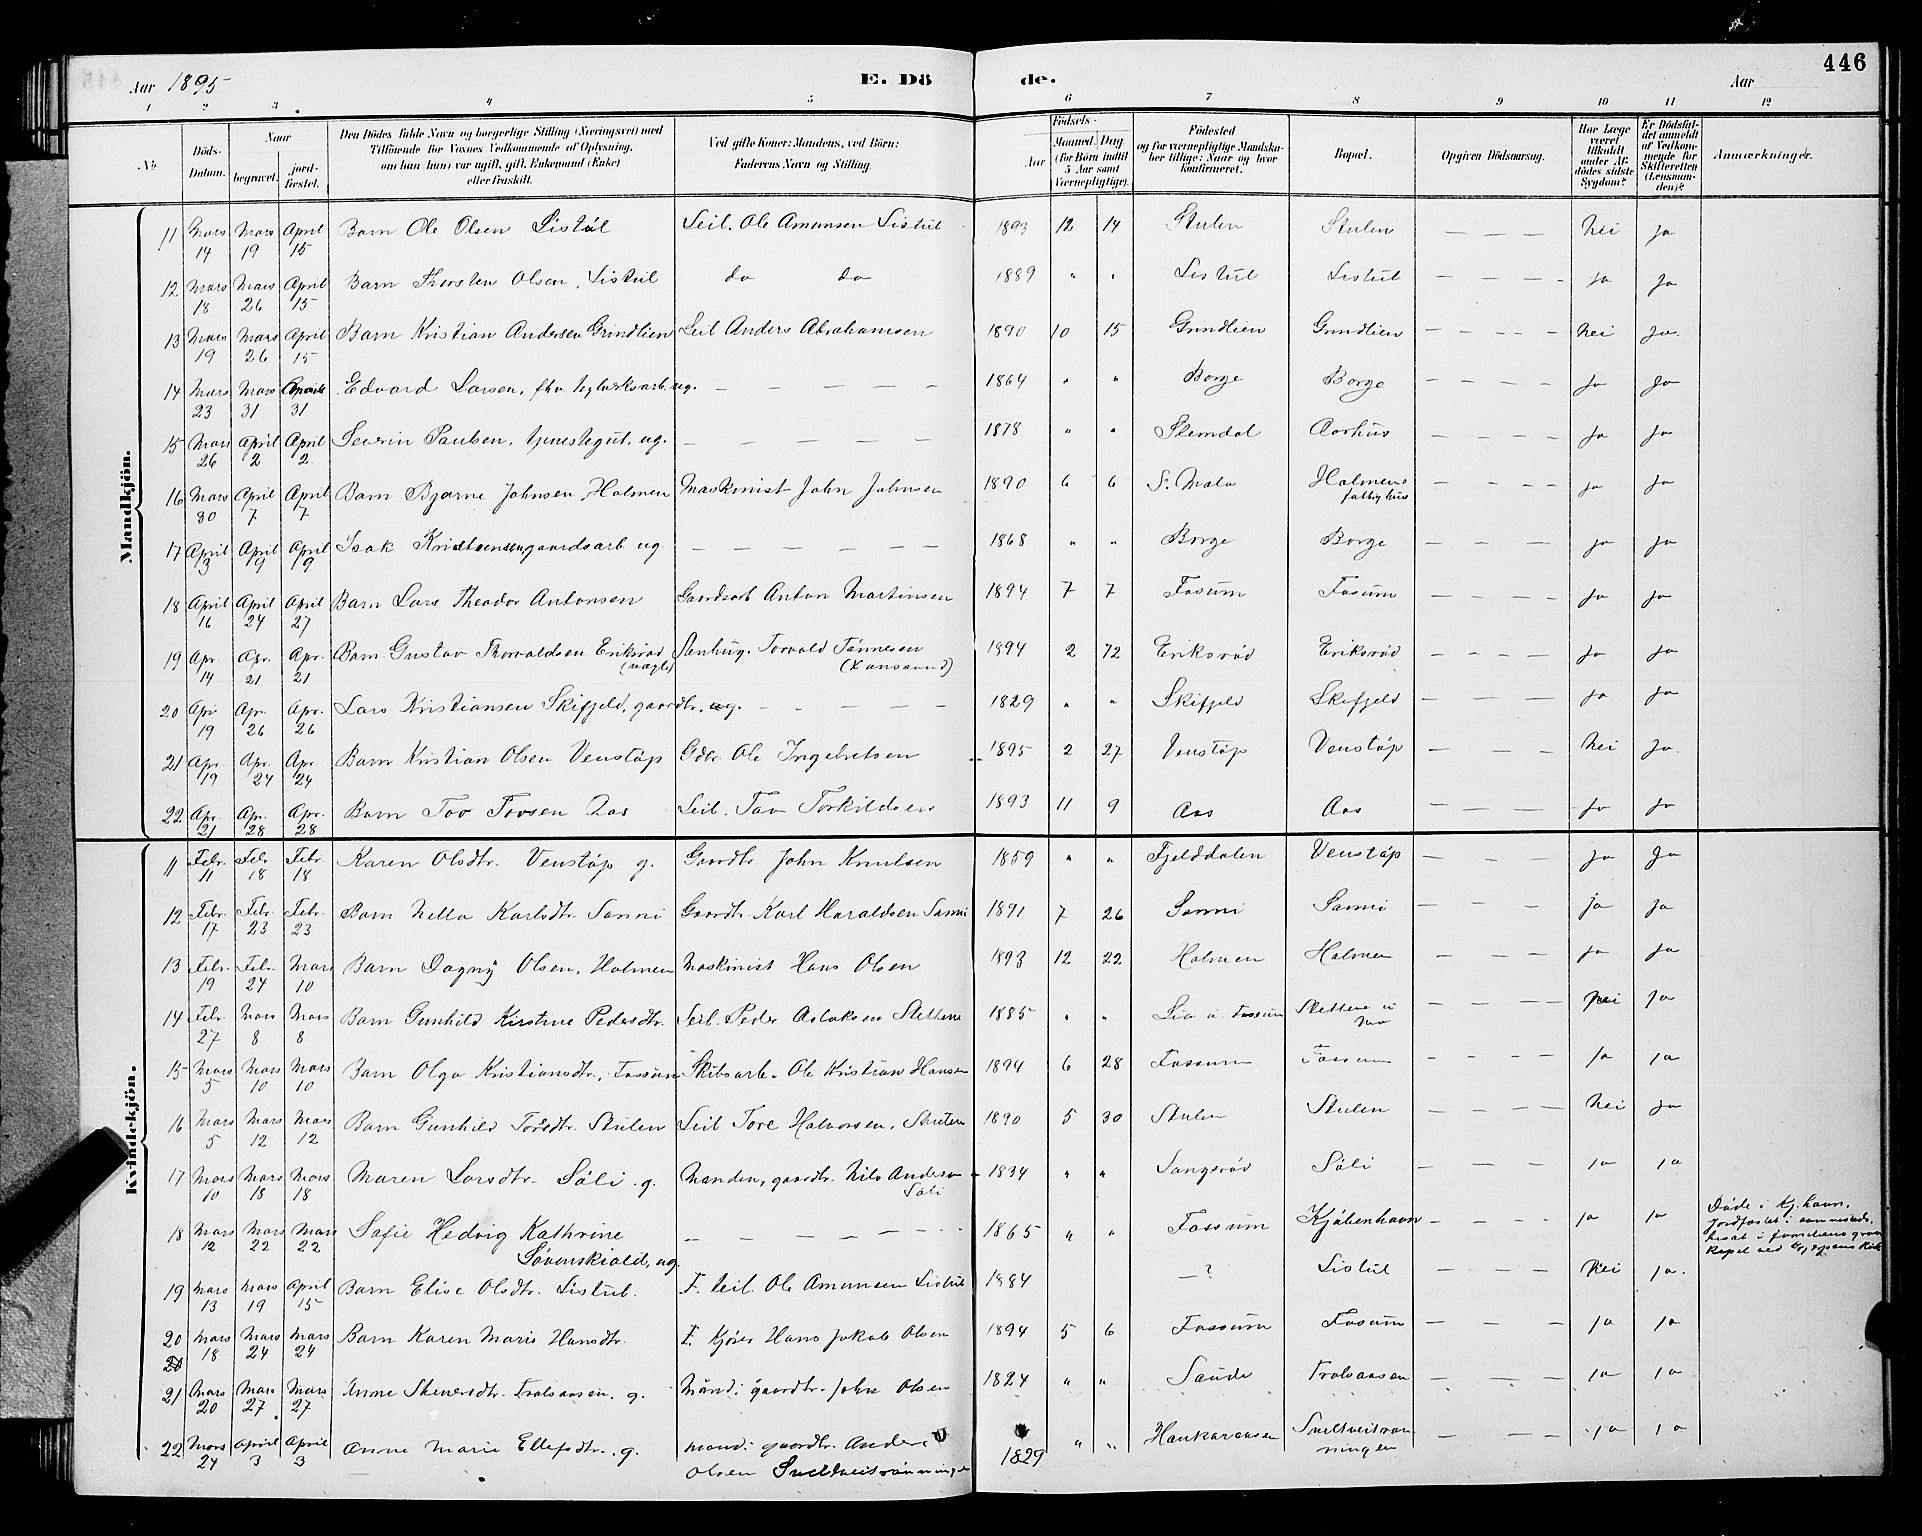 446
Aar 1895 E. Dö de. Aar
1 2 3 4 5 6 7 8 9 10 11 12
No Döds-Datum. Naar begravet. jord-fæstet. Den Dödes fulde Navn og borgerlige Stilling (Næringsvei) med Tilföiende for Voxnes Vedkommende af Oplysning, om han (hun) var ugift, gift, Enkemand (Enke) eller fraskilt. Ved gifte Koner: Mandens, ved Börn: Faderens Navn og Stilling. Födsels- Aar Maaned. Dag (for Börn indtil 5 Aar samt Værnepligtige). Födested og for værnepligtige Mandska-ber tillige: Naar og hvor konfirmeret. Bopæl. Opgiven Dödsaarsag. Har Læge været tilkaldt under Af-dödes sidste Sygdom? Er Dödsfal-det anmeldt af Vedkom-mende for Skifteretten (Lensman-den)? Anmærkninger.
Mandkjön.
11 Mars 14 Mars 19 April 15 Barn Ole Olsen Listul Leil. Ole Amunsen Listul 1893 12 14 Stulen Stulen — — — Nei Ja
12 Mars 18 Mars 26 April 15 Barn Thorsten Olsen, Listul do do 1889 " " Listul Listul — — — - Ja Ja
13 Mars 19 Mars 26 April 15 Barn Kristian Andersen Grindlien Leil Anders Abrahamsen 1890 10 15 Grindlien Grindlien — — — — Nei Ja.
14 Mars 23 Mars 31 31 Edvard Larsen, fhv. teglverksarb. ug. — — — — — 1864 " " Borge Borge — — — — Ja Ja
15 Mars 26 April 2 April 2 Severin Paulsen, tjenestegut, ug. — — — — — 1878 " " Slemdal Aarhus — — — — Ja Ja
16 Mars 30 April 7 April 7 Barn Bjarne Johnsen, Holmen Maskinist John Johnsen 1890 6 6 St. Malo Holmens fattighus — — — — ja ja
17 April 13 April 19 April 19 Isak Kristensen gaardsarb ug. — — — — — 1868 " " Borge Borge — — — — ja ja
18 April 16 April 24 April 27 Barn Lars Theodor Antonsen Gaardsarb Anton Martinsen 1894 7 7 Fosum Fosum — — — — Ja Ja
19 Apr. 14 Apr. 21 Apr. 21 Barn Gustav Thorvaldsen Eriksrød (uægte) Torvald Tønnesen 1894 2 Eriksrød Eriksrød — — — — Ja Ja
20 Apr 19 Apr. 26 Apr. 26 Lars Kristiansen Skifjeld, gaardbr., ug. — — — — — 1829 " " Skifjeld Skifjeld — — — Ja Ja
21 Apr. 19 Apr. 24 Apr. 24 Barn Kristian Olsen Venstøp Gdbr. Ole Ingebretsen 1895 2 27 Venstøp Venstøp — — — Nei Ja.
22 Apr. 21 Apr. 28 Apr. 28 Barn Tov Tovsen Aas Leil. Tov Torkildsen 1893 11 9 Aas Aas — — — — Ja Ja
Kvindekjön.
11 Febr. 11 Febr. 18 Febr. 18 Karen Olsdtr. Venstøp g. Gaardbr John Knutsen 1859 " " Fjelddalen Venstøp — — — — Ja Ja
12 Febr. 17 Febr. 23 Febr. 23 Barn Nella Karlsdtr. Sanni Gaardbr. Karl Haraldsen Sanni 1891 7 26 Sanni Sanni — — — — Ja Ja
13 Febr. 19 Febr. 24 Mars 10 Barn Dagny Olsen, Holmen Maskinist Hans Olsen 1893 12 22 Holmen Holmen — — — — Ja Ja
14 Febr. 27 Mars 8 Mars 8 Barn Gunhild Kirstine Pedersdtr. Leil. Peder Aslaksen Slettene 1885 " " Lia u. Fossum Slettene u — — — — Nei Ja
15 Mars 5 Mars 10 Mars 10 Barn Olga Kristiansdtr., Fossum Skibsarb. Ole Kristian Hansen 1894 6 28 Fossum Fossum — — — — Ja Ja
16 Mars 5 Mars 12 Mars 12 Barn Gunhild Toresdtr. Stulen Leil Tore Halvorsen, 1890 5 30 Stulen Stulen — — — — Nei Ja
17 Mars 10 Mars 18 Mars 18 Maren Larsdtr. Søli. g. Manden, gaardbr. Nils Andersen Søli 1834 " " Søli — — — — Ja Ja
18 Mars 12 Mars 22 Mars 22 Sofie Hedvig Kathrine Løvenskiold, ug. — — — — — 1865 " " Fossum Kjøbenhavn — — — — Ja Ja Døde i Kj.havn.
19 Mars 13 Mars 19 April 15 Barn Elise Olsdtr. Listul. F. Leil. Ole Amunsen Listul 1884 —? Listul — — — Nei Ja.
20 Mars 18 Mars 24 Mars 24 Barn Karen Marie Hansdtr. F. Hans Jakob Olsen 1894 5 6 Fossum Fosum — — — Ja Ja
21 Mars 20 Mars 27 Mars 27 Anne g. Mand: gaardbr. John Olsen 1824 " " Saude — — — Ja Ja
22 Mars 24 April 3 April 3 Anne Marie Ellefsdtr. g. Mand: gaardbr. Anders Olsen 1829 " " — — — Ja Ja